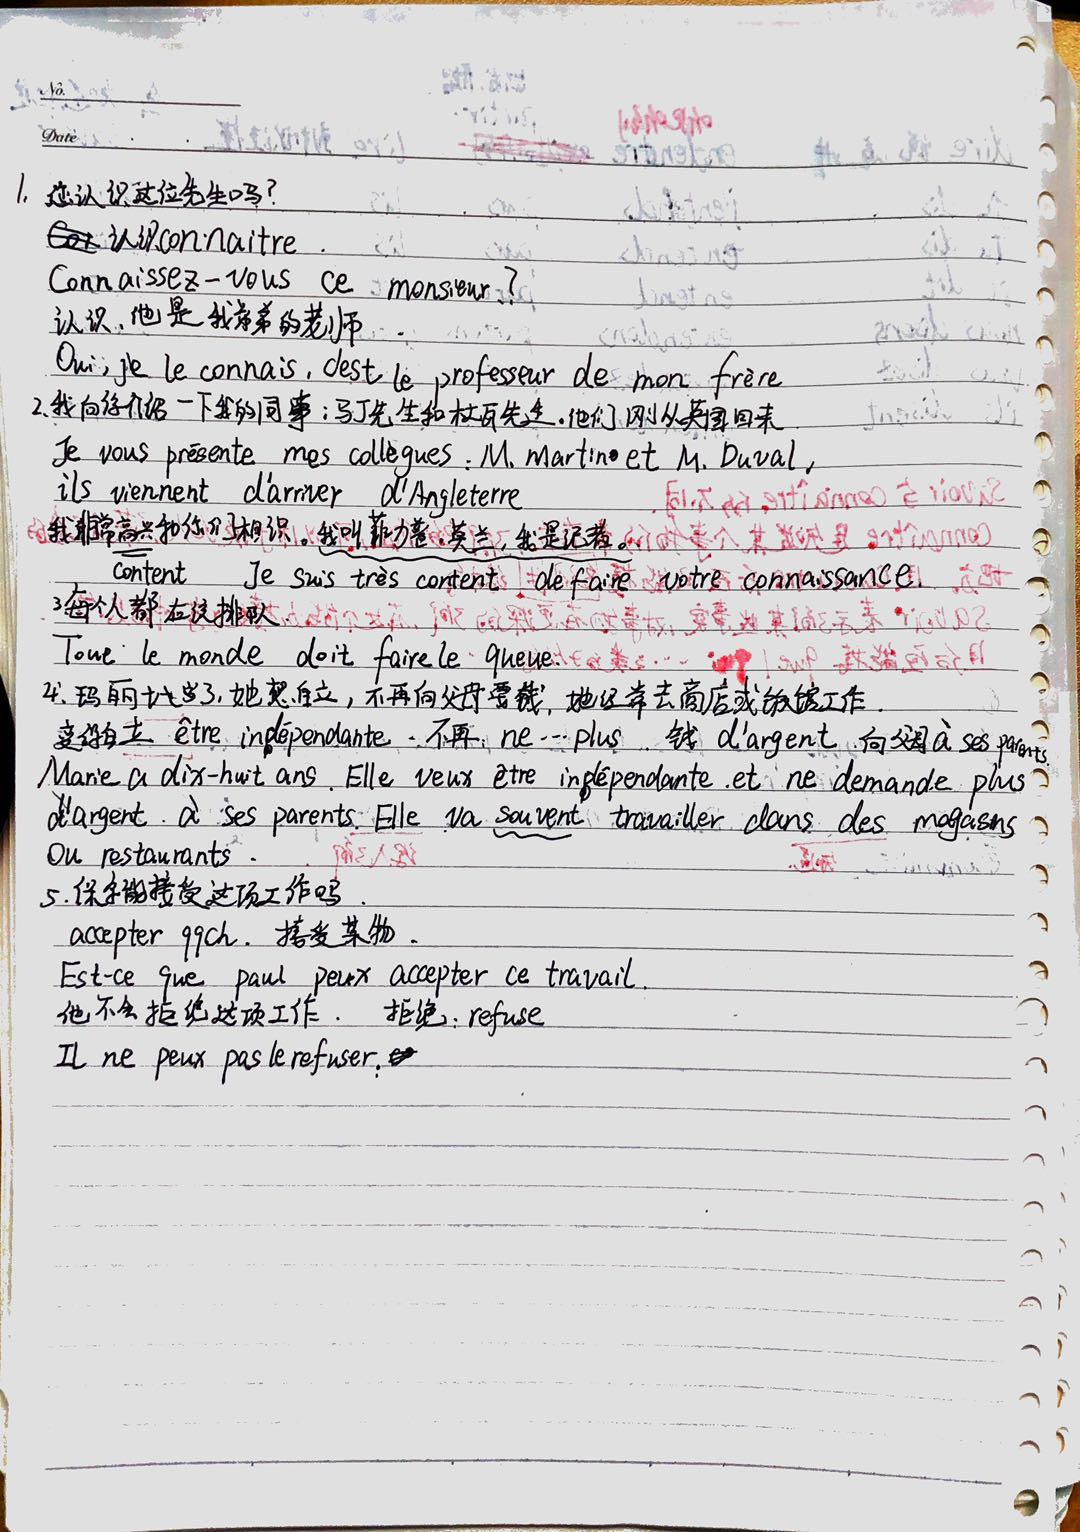 No.
Date
1. 您认识这位先生吗?
认识connaitre.
Connaissez-vous ce monsieur?
认识,他是我弟弟的老师.
Oui, je le connais, c'est le professeur de mon frère
2.我向你介绍一下我的同事:马丁先生和杜瓦先生.他们刚从英国回来
Je vous présente mes collègues: M. Martin et M. Duval,
ils viennent d'arriver d'Angleterre
我非常高兴和你们相识。我叫菲力普·莫兰,我是记者。
content Je suis très content de faire votre connaissance.
3每个人都在这排队
Tout le monde doit faire le queue.
4.玛丽十八岁了,她想自立,不再向父母要钱,她经常去商店或饭馆工作.
变得自立 être indépendante. 不再: ne … plus 钱 d'argent 向父母 à ses parents.
Marie a dix-huit ans. Elle veux être indépendante et ne demande plus
d'argent à ses parents. Elle va souvent travailler dans des magasins
Ou restaurants.
5.保尔能接受这项工作吗.
accepter qqch. 接受某物.
Est-ce que paul peux accepter ce travail.
他不会拒绝这项工作. 拒绝: refuse
Il ne peux pas le refuser.